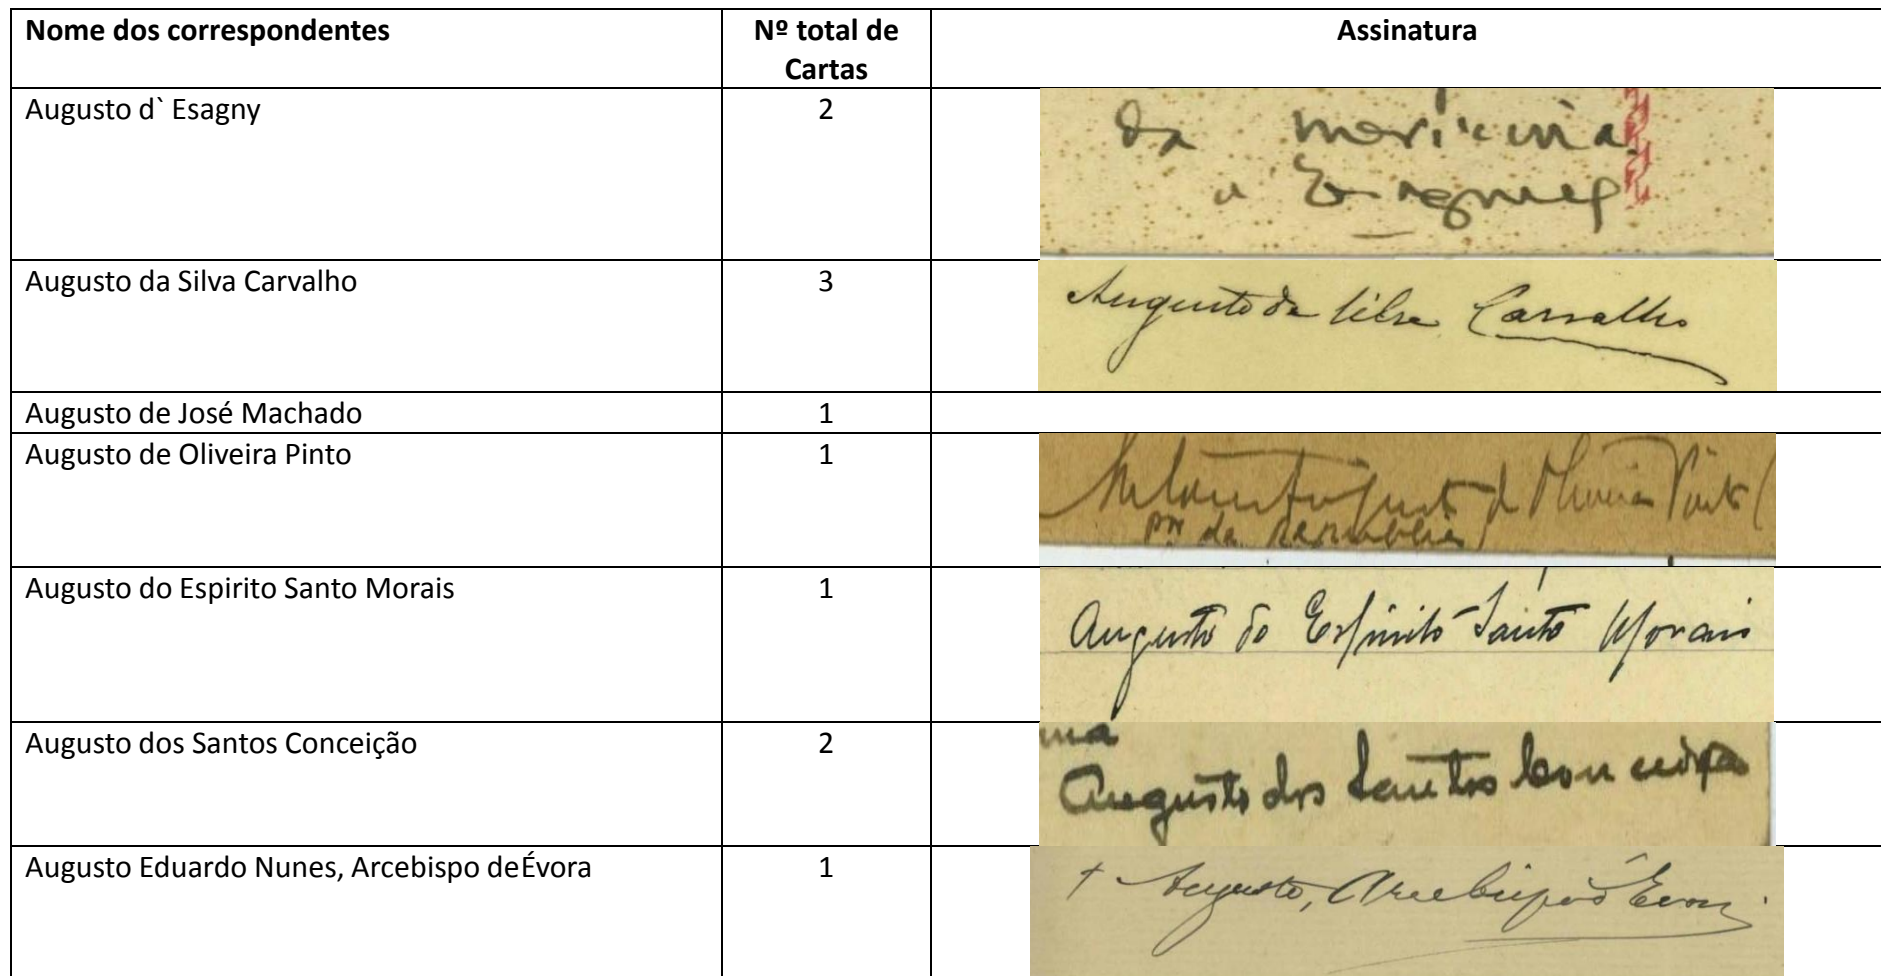 Nome dos correspondentes
Nº total de
Cartas
Assinatura
Augusto d` Esagny
2
da
Augusto da Silva Carvalho
3
Augusto da Silva Carvalho
Augusto de José Machado
1
Augusto de Oliveira Pinto
1
Augusto de Oliveira Pinto
da
Augusto do Espirito Santo Morais
1
Augusto do Espirito Santo Morais
Augusto dos Santos Conceição
2
ma
Augusto dos Santos Conceição
Augusto Eduardo Nunes, Arcebispo deÉvora
1
+ Augusto, Arcebispo d'Evora